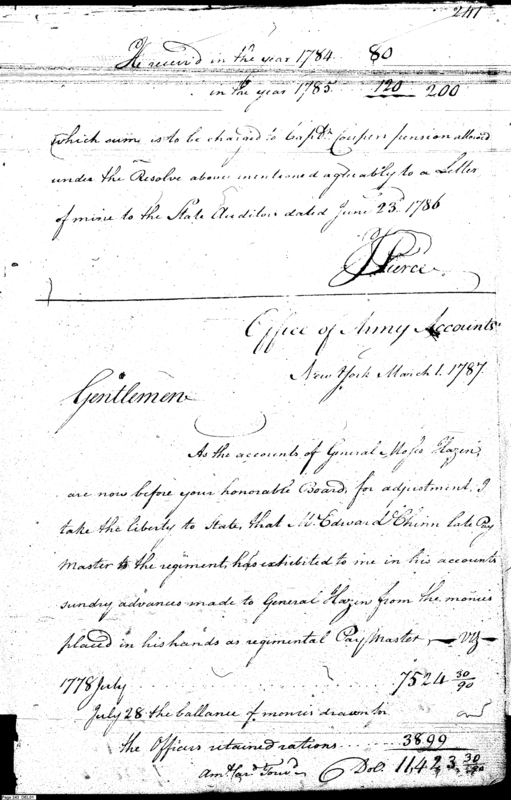 241
He receiv'd in the year 1784. 80
in the year 1785. 120 200
which sum is to be charged to Capt. Coupen pension allowed
under the Resolve above mentioned agreeably to a Letter
of mine to the State Auditor dated June 23d. 1786
J Pierce
Office of Army Accounts
New York March 1. 1787.
Gentlemen
As the accounts of General Moses Hazen,
are now before your honorable Board, for adjustment, I
take the liberty to State, that Mr. Edward Chinn late Pay
Master to the regiment, has exhibited to me in his accounts
sundry advances made to General Hazen from the monies
placed in his hands as regimental Pay Master, — viz —
1778 July . . . 7524 30/90
July 28 the ballance of monies drawn for
the Officers retained rations . . . . 3899
Amt. Card. Forwd. Dol. 11,423 30/90
Page 241